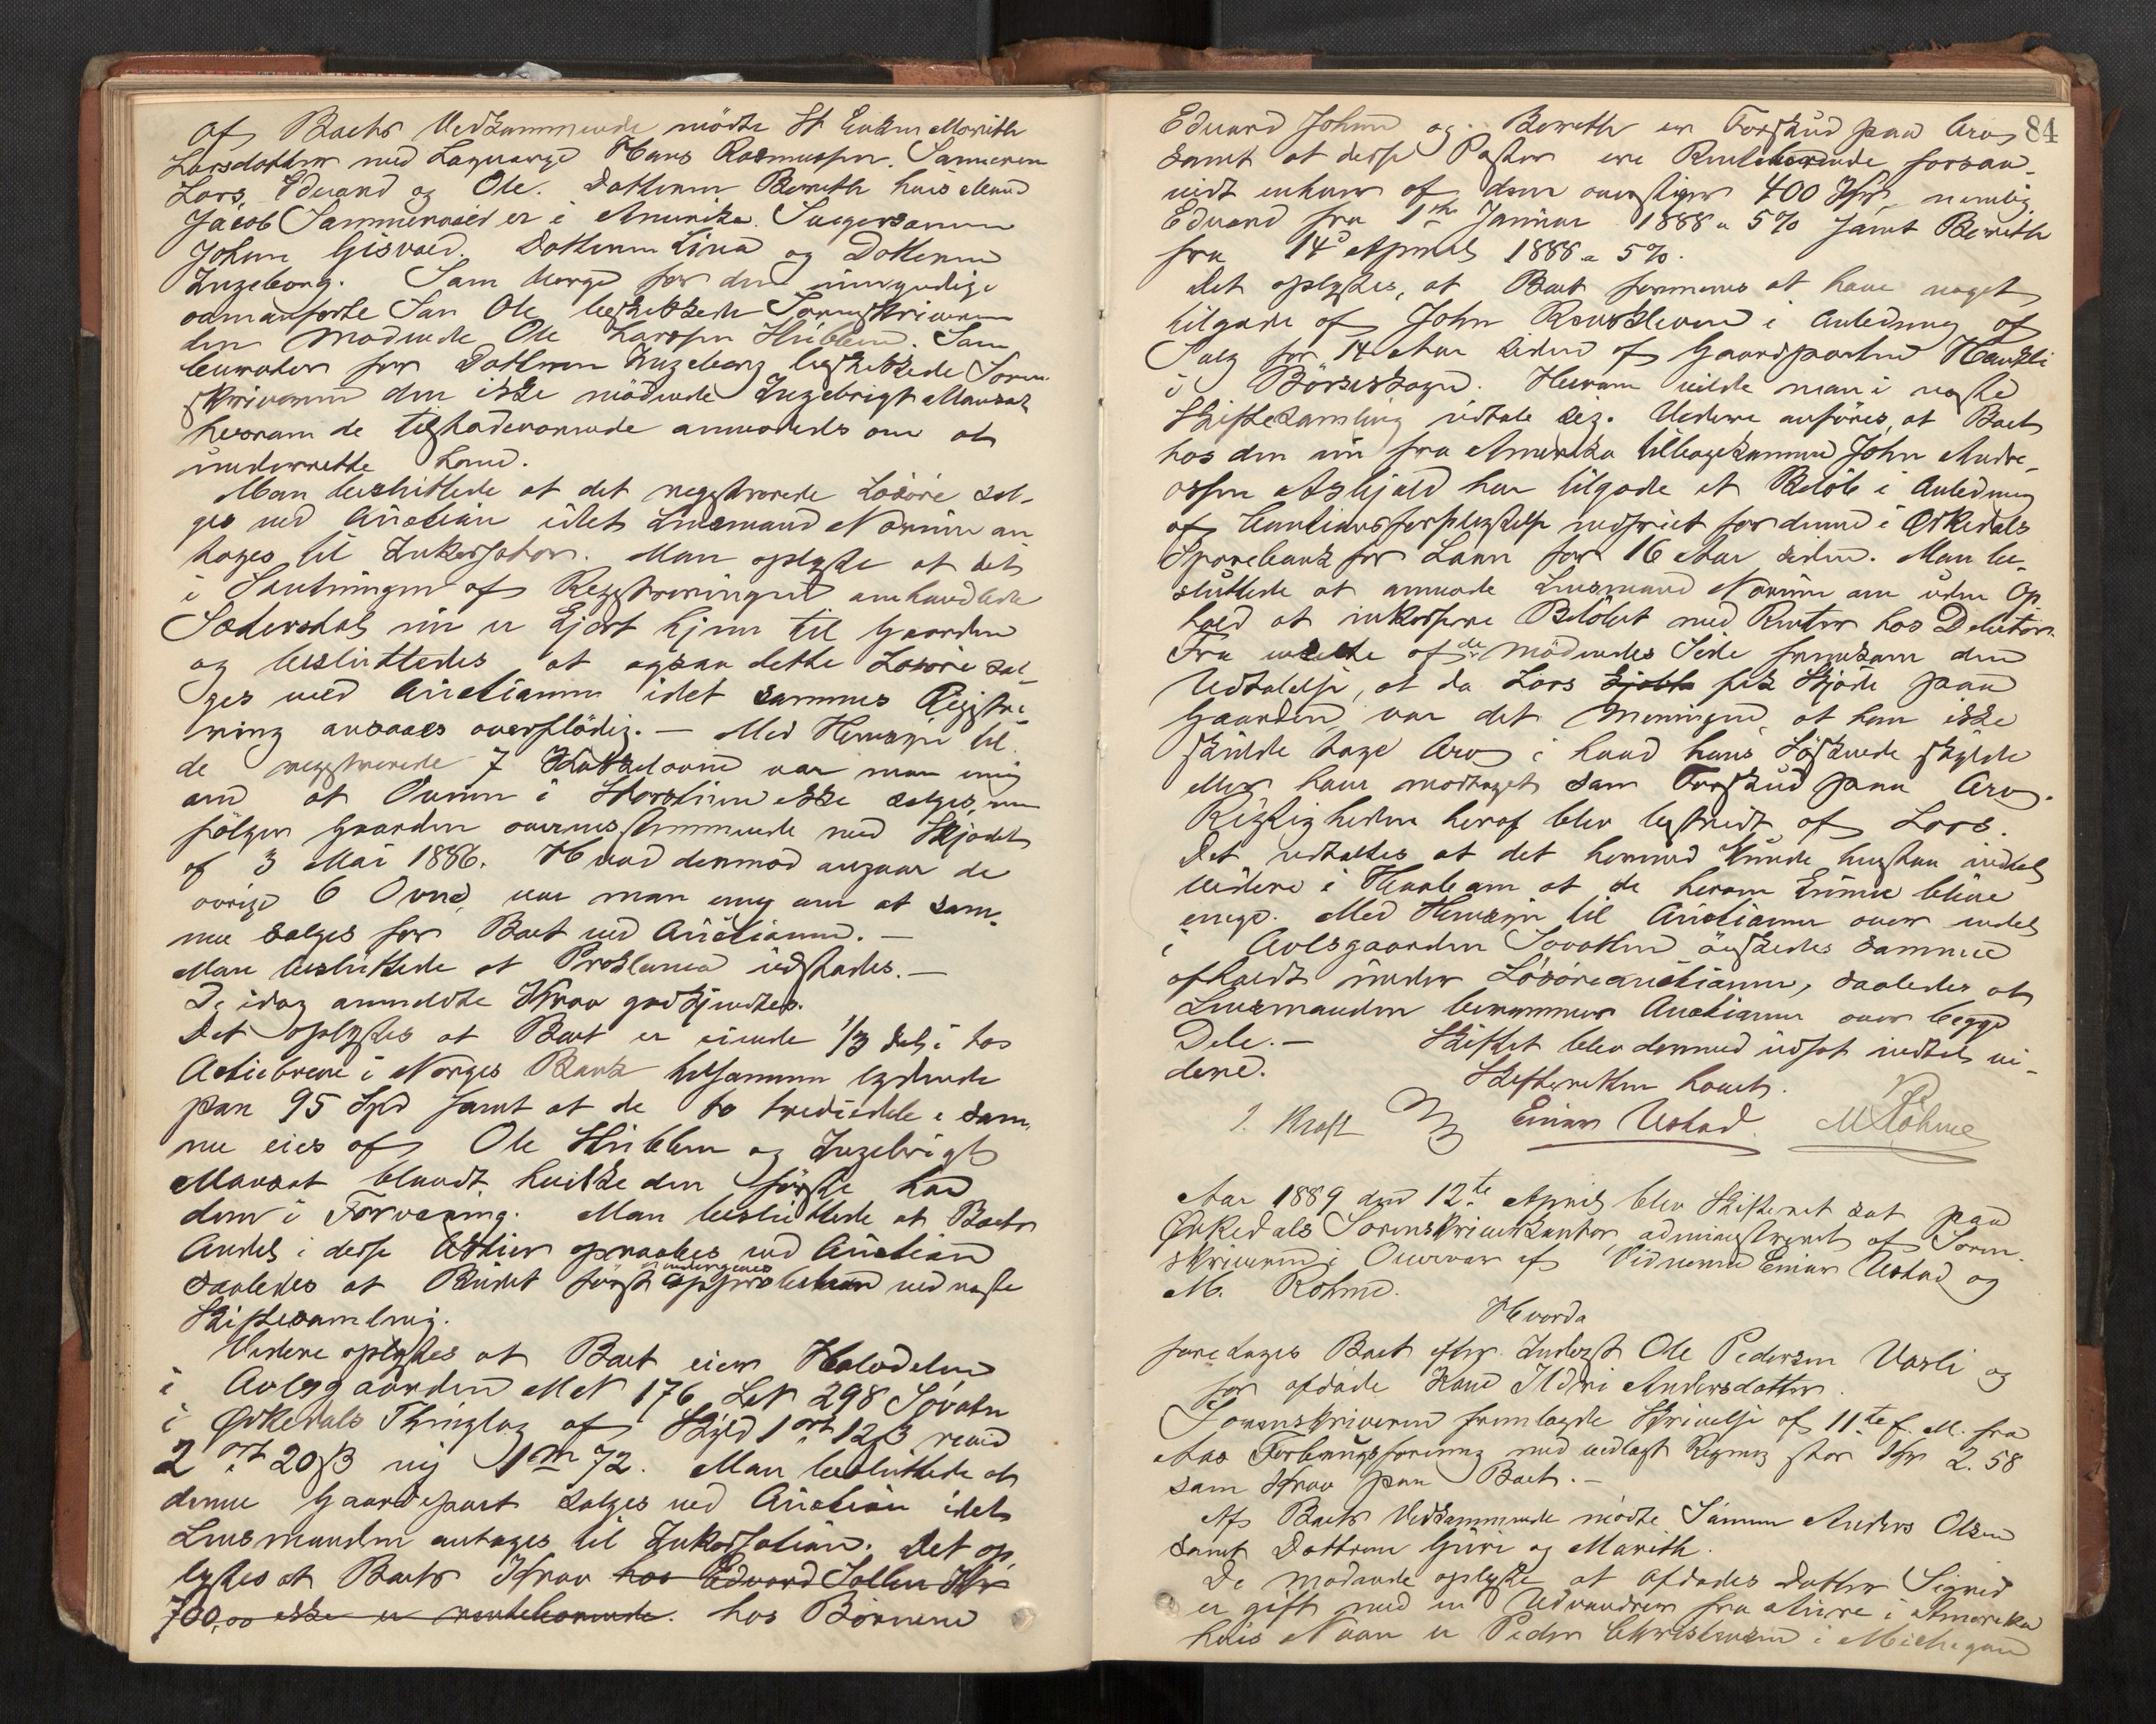 af Boets Vedkommende mödte St Enken Marith
Larsdatter med Laugværge Hans Rasmussen. Sønnerne
Lars, Edvard og Ole. Datteren Bereth hvis Mand
Jacob Sammervold er i Amerika. Svigersønnen
Johan Gisvold. Datteren Lina og Datteren
Ingeborg. Som Værge for den umyndige
ovenanførte Søn Ole beskikkede Sorenskriveren
den mödende Ole Larssen Hüblen. Som
Curator for Datteren Ingeborg beskikkede Soren
skriveren den ikke mödende Ingebrigt Mansat
hvorom de tilstedeværende anmodedes om at
underrette ham.
Man besluttede at det registrerede Lösöre sæl-
ges ved Auction idet Lensmand Norum an
tages til Inkassator. Man oplyste at det
i Slutningen af Registreringen omhandlede
Sæterstal nu er kjört hjem til Gaarden
og besluttedes at ogsaa dette Lösöre sæl-
ges ved Auctionen idet sammes Registre-
ring ansaaes overflödig. — Med Hensyn til
de registrerede 7 Kakkelovne var man enig
om at Ovnen i Storstuen ikke sælges, men
fölger Gaarden overensstemmende med Skjödet
af 3 Mai 1886. Hvad derimod angaar de
övrige 6 Ovne, var man enig om at sam-
me sælges for Boet ved Auctionen. —
Man besluttede at Proklama udstædes. —
De idag anmeldte Krav godkjendtes.
Det oplystes at Boet er eiende 1/3 Del i to
Actiebreve i Norges Bank tilsammen lydende
paa 95 Spd samt at de to trediedele i sam-
me eies af Ole Hüblen og Ingebrigt
Mansat blandt hvilke den förste har
dem i Forvaring. Man besluttede at Boets
Andel i disse Actier opraabes ved Auction
saaledes at Budet först undergives approbation ved næste
Skiftesamling.
Videre oplystes at Boet eier Halvdelen
i Avlsgaarden MN 176 LN 298 Sövatn
i Örkedals Thinglag af Skyld 1 ort 12 β revid
2 ort 20 β ny 1 M 72. Man besluttede at
denne Gaardepart sælges ved Auction idet
Lensmanden antages til Inkassation. Det op-
lystes at Boets Krav hos Edvard Sollien Kr
700,00 ikke er rentebærende. hos Börnene
84
Edvard Johan og Bereth er Forskud paa Arv
samt at disse Poster ere Rentebærende forsaa-
vidt enhver af dem overstiger 400 Kr, nemlig
Edvard fra 1ste Januar 1888 a 5% samt Bereth
fra 14d April 1888 a 5%.
Det oplystes, at Boet formenes at have noget
tilgode af John Rønskleven i Anledning af
Salg for 14 Aar siden af Gaardparten Hauskli
i Börseskogn. Herom vilde man i næste
Skiftesamling udtale sig. Videre anföres, at Boet
hos den nu fra Amerika tilbagekomne John Andre-
assen Askjæld har tilgode et Beløb i Anledning
af Cautionsforpligtelse indfriet for denne i Örkedals
Sparebank for Laan for 16 Aar siden. Man be-
sluttede at anmode Lensmand Norum om uden Op
hold at inkassere Belöbet med Renter hos Debitor.
Fra enkelte af de Mödendes Side fremkom den
Udtalelse, at da Lars kjøbte fik Skjöde paa
Gaarden, var det Meningen at han ikke
skulde tage Arv i hvad hans Söskende skylde
eller have modtaget som Forskud paa Arv.
Rigtigheden heraf blev bestridt af Lars.
Det udtaltes at det hermed kunde henstaa indtil
videre i Haab om at de herom kunne blive
enige. Med Hensyn til Auctionen over Andel
i Avlsgaarden Sovatten önskedes samme
afholdt under Lösöreauctionen, saaledes at
Lensmanden berammer Auctionen over begge
Dele. — Skiftet blev dermed udsat indtil vi-
dere. Skifteretten hævet.
J. Kraft Einar Ustad. M Röhme
Aar 1889 den 12te April blev Skifteret sat paa
Örkedals Sorenskriverkontor, administreret af Soren-
skriveren i Overvær af Vidnerne Einar Ustad og
M. Röhme.
Hvorda
foretages Boet efter Inderst Ole Pedersen Vasli og
för afdöde Kone Ildri Andersdatter.
Sorenskriveren fremlagde Skrivelse af 11te f. M. fra
Aas Forbrugsforening med vedlagt Regning stor Kr 2.58
som Krav paa Boet. —
Af Boets Vedkommende mödte Sönnen Anders Olsen
samt Döttrene Guri og Marith.
De Mödende oplyste at Afdödes Datter Sigrid
er gift med en Udvandrer fra Aure i Amerika
hvis Navn er Peder Christensen i Michigan